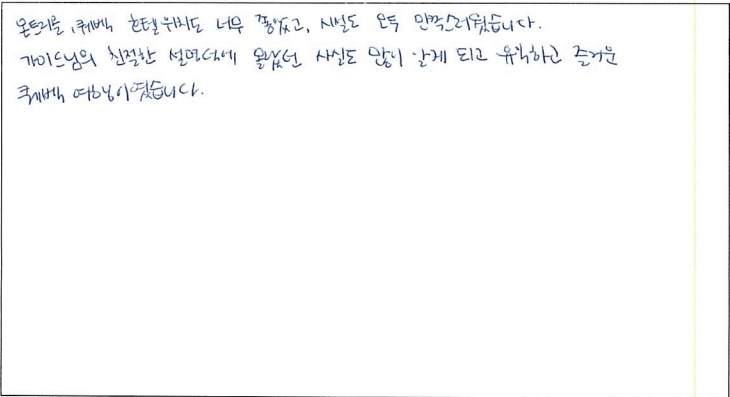 몬트리올, 퀘벡 호텔위치도 너무 좋았고, 시설도 모두 만족스러웠습니다.
가이드님의 친절한 설명덕에 몰랐던 사실도 많이 알게 되고 유익하고 즐거운
퀘벡 여행이였습니다.